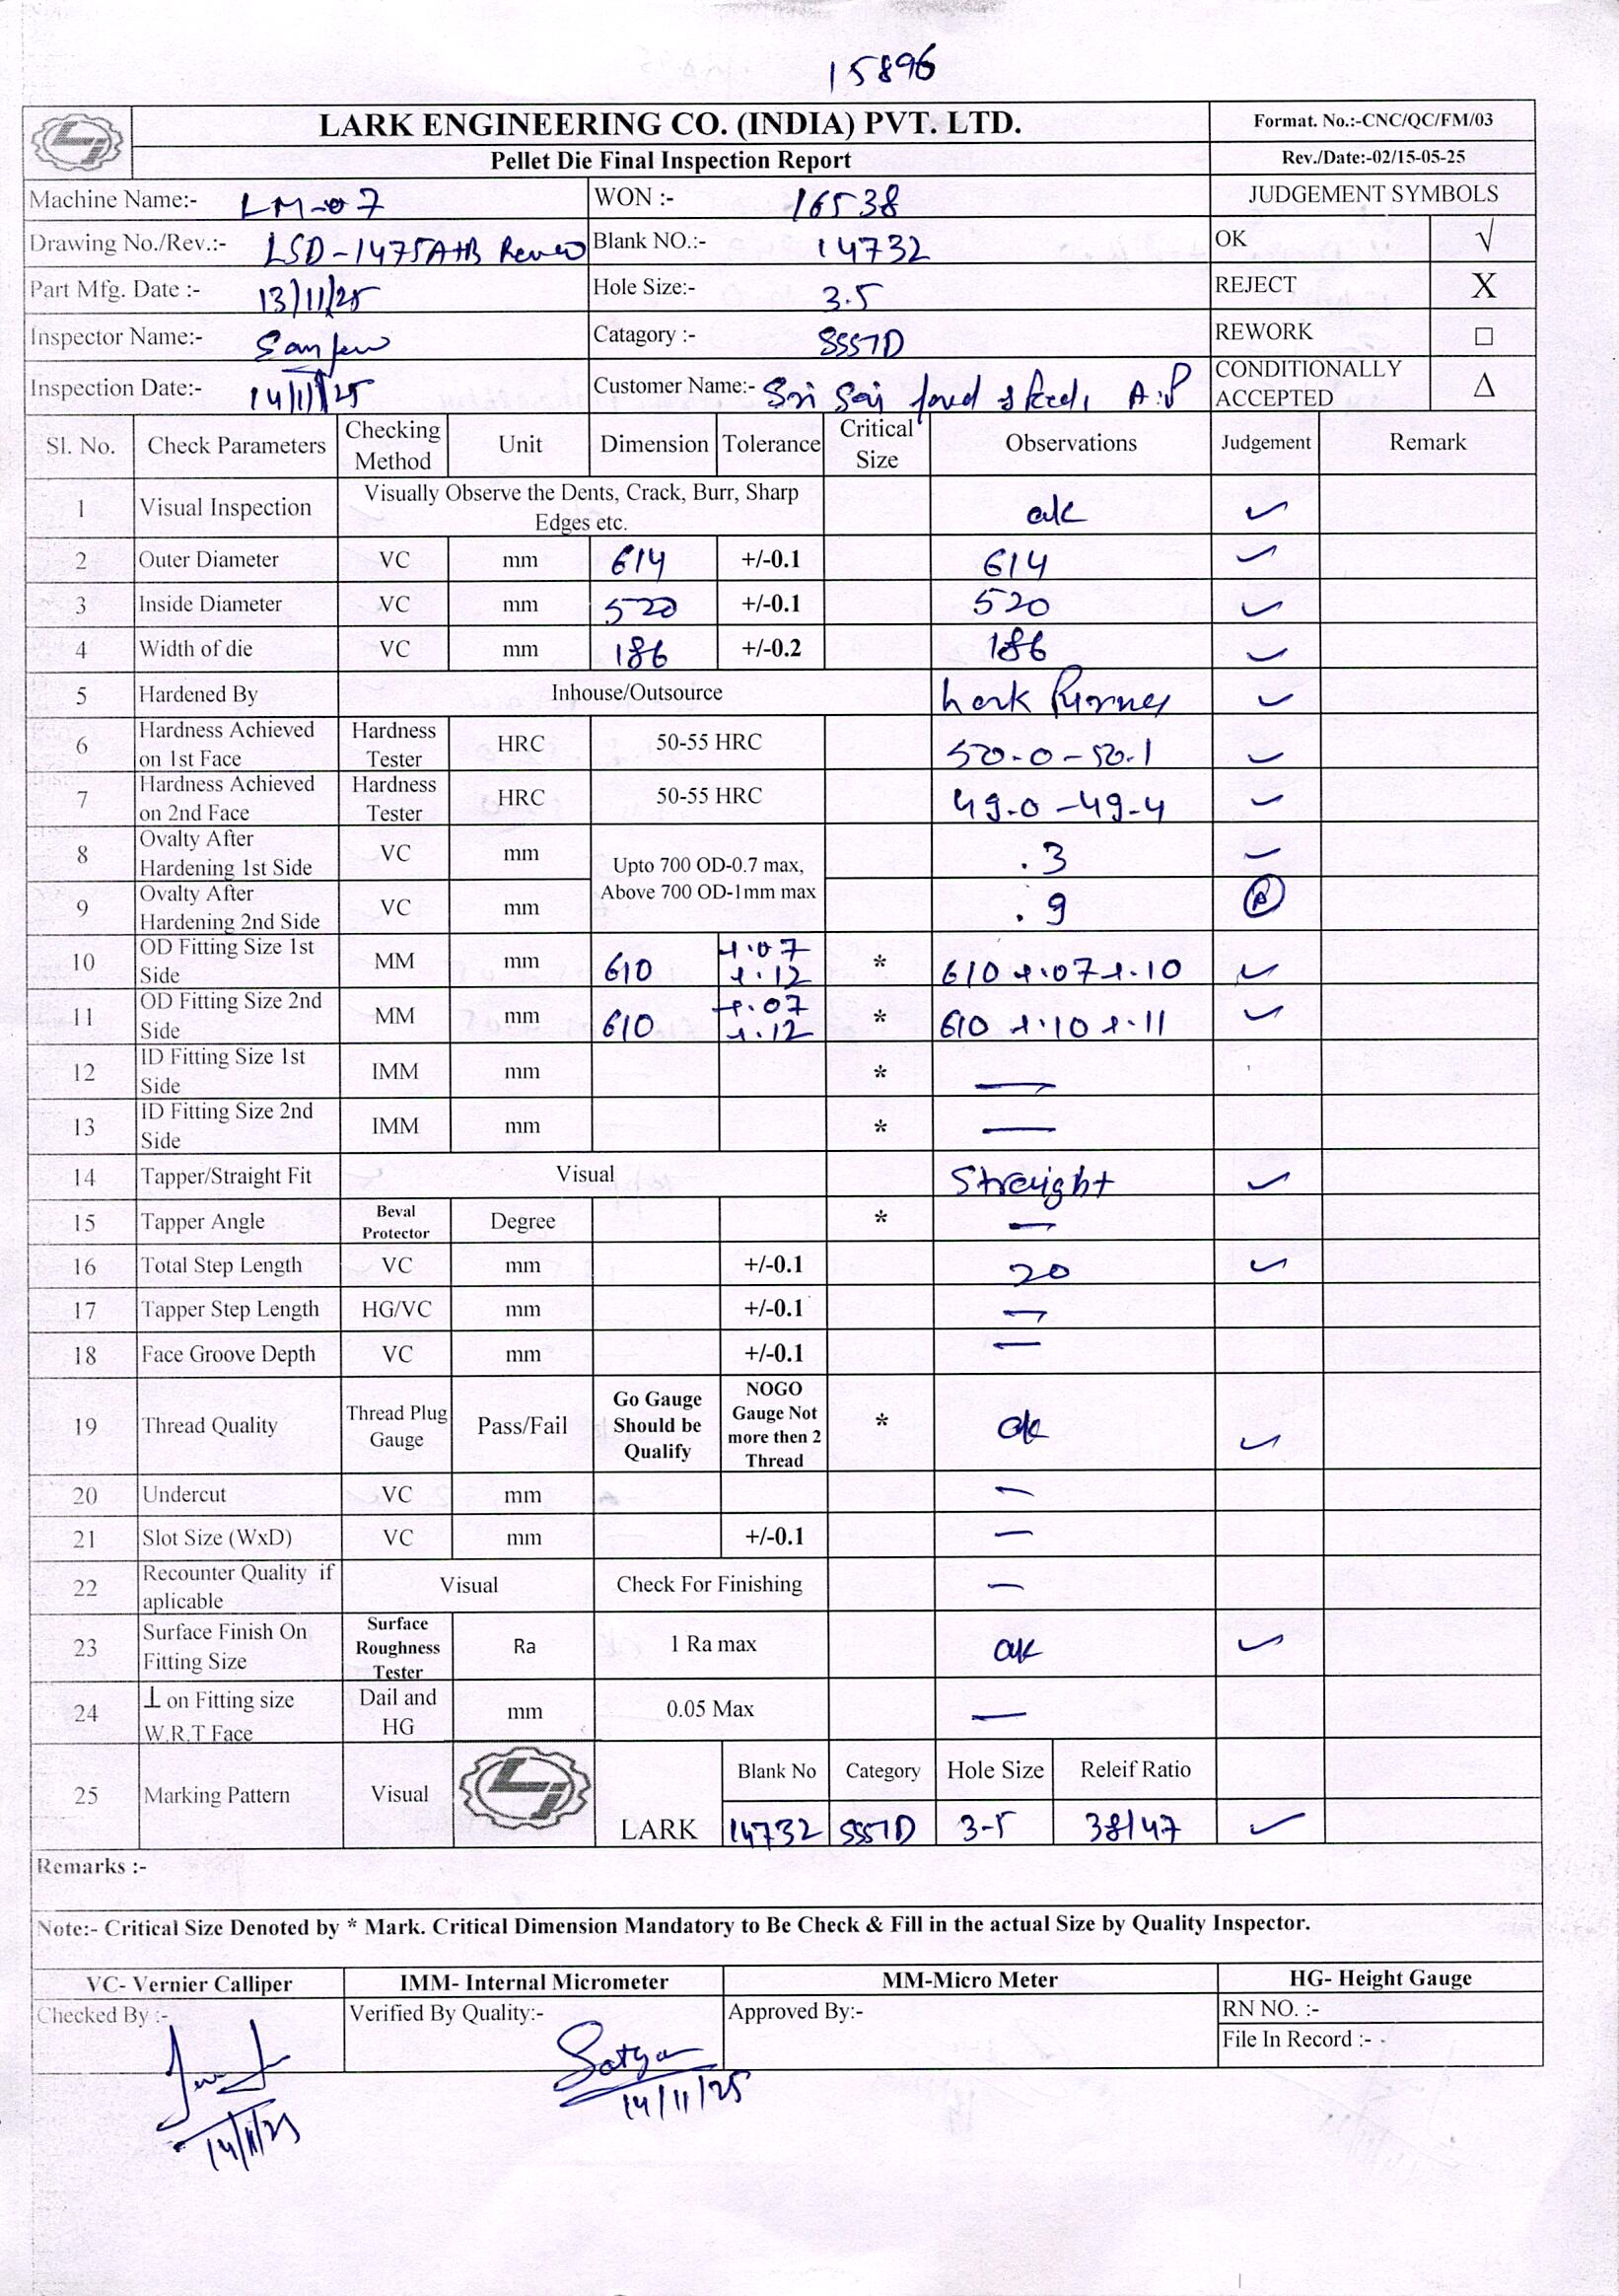 15896
LARK ENGINEERING CO. (INDIA) PVT. LTD.
Format. No.:-CNC/QC/FM/03
Pellet Die Final Inspection Report
Rev./Date:-02/15-05-25
Machine Name:- LM-07 WON :- 16538 JUDGEMENT SYMBOLS
Drawing No./Rev.:- LSD-1475A+B Blank NO.:- 14732 OK √
Part Mfg. Date :- 13/11/25 Hole Size:- 3.5 REJECT X
Inspector Name:- Catagory :- SSSTD REWORK □
Inspection Date:- 14/11/25 Customer Name:- Sri Sai A.P CONDITIONALLY ACCEPTED Δ
Sl. No. Check Parameters Checking Method Unit Dimension Tolerance Critical Size Observations Judgement Remark
1 Visual Inspection Visually Observe the Dents, Crack, Burr, Sharp Edges etc. ok ✓
2 Outer Diameter VC mm 614 +/-0.1 614 ✓
3 Inside Diameter VC mm 520 +/-0.1 520 ✓
4 Width of die VC mm 186 +/-0.2 186 ✓
5 Hardened By Inhouse/Outsource Lark ✓
6 Hardness Achieved on 1st Face Hardness Tester HRC 50-55 HRC 50.0-50.1 ✓
7 Hardness Achieved on 2nd Face Hardness Tester HRC 50-55 HRC 49.0-49.4 ✓
8 Ovalty After Hardening 1st Side VC mm Upto 700 OD-0.7 max, Above 700 OD-1mm max .3 ✓
9 Ovalty After Hardening 2nd Side VC mm .9
10 OD Fitting Size 1st Side MM mm 610 +.07 +.12 * 610 +.07 +.10 ✓
11 OD Fitting Size 2nd Side MM mm 610 +.07 +.12 * 610 +.10 +.11 ✓
12 ID Fitting Size 1st Side IMM mm * —
13 ID Fitting Size 2nd Side IMM mm * —
14 Tapper/Straight Fit Visual Straight ✓
15 Tapper Angle Beval Protector Degree * —
16 Total Step Length VC mm +/-0.1 20 ✓
17 Tapper Step Length HG/VC mm +/-0.1 —
18 Face Groove Depth VC mm +/-0.1 —
19 Thread Quality Thread Plug Gauge Pass/Fail Go Gauge Should be Qualify NOGO Gauge Not more then 2 Thread * ok ✓
20 Undercut VC mm —
21 Slot Size (WxD) VC mm +/-0.1 —
22 Recounter Quality if aplicable Visual Check For Finishing —
23 Surface Finish On Fitting Size Surface Roughness Tester Ra 1 Ra max ok ✓
24 ⊥ on Fitting size W.R.T Face Dail and HG mm 0.05 Max —
25 Marking Pattern Visual LARK Blank No Category Hole Size Releif Ratio
14732 SSSTD 3.5 38/47 ✓
Remarks :-
Note:- Critical Size Denoted by * Mark. Critical Dimension Mandatory to Be Check & Fill in the actual Size by Quality Inspector.
VC- Vernier Calliper IMM- Internal Micrometer MM-Micro Meter HG- Height Gauge
Checked By :- Verified By Quality:- Approved By:- RN NO. :-
File In Record :-
Satya
14/11/25
14/11/25